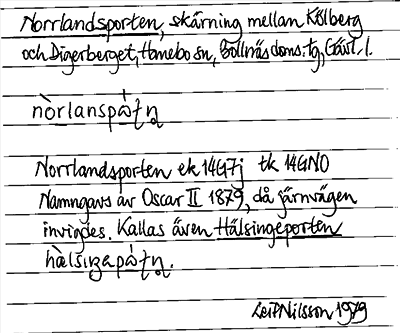 Norrlandsporten, skärning mellan Kölberg
och Digerberget, Hanebo sn, Bollnäs doms. tg, Gävl. l.
nòrlanspὼṭṇ
Norrlandsporten ek 14G7j tk 14GNO
Namngavs av Oscar II 1879, då järnvägen
invigdes. Kallas även Hälsingeporten
hὰlsıŋapὼṭṇ.
Leif Nilsson 1979